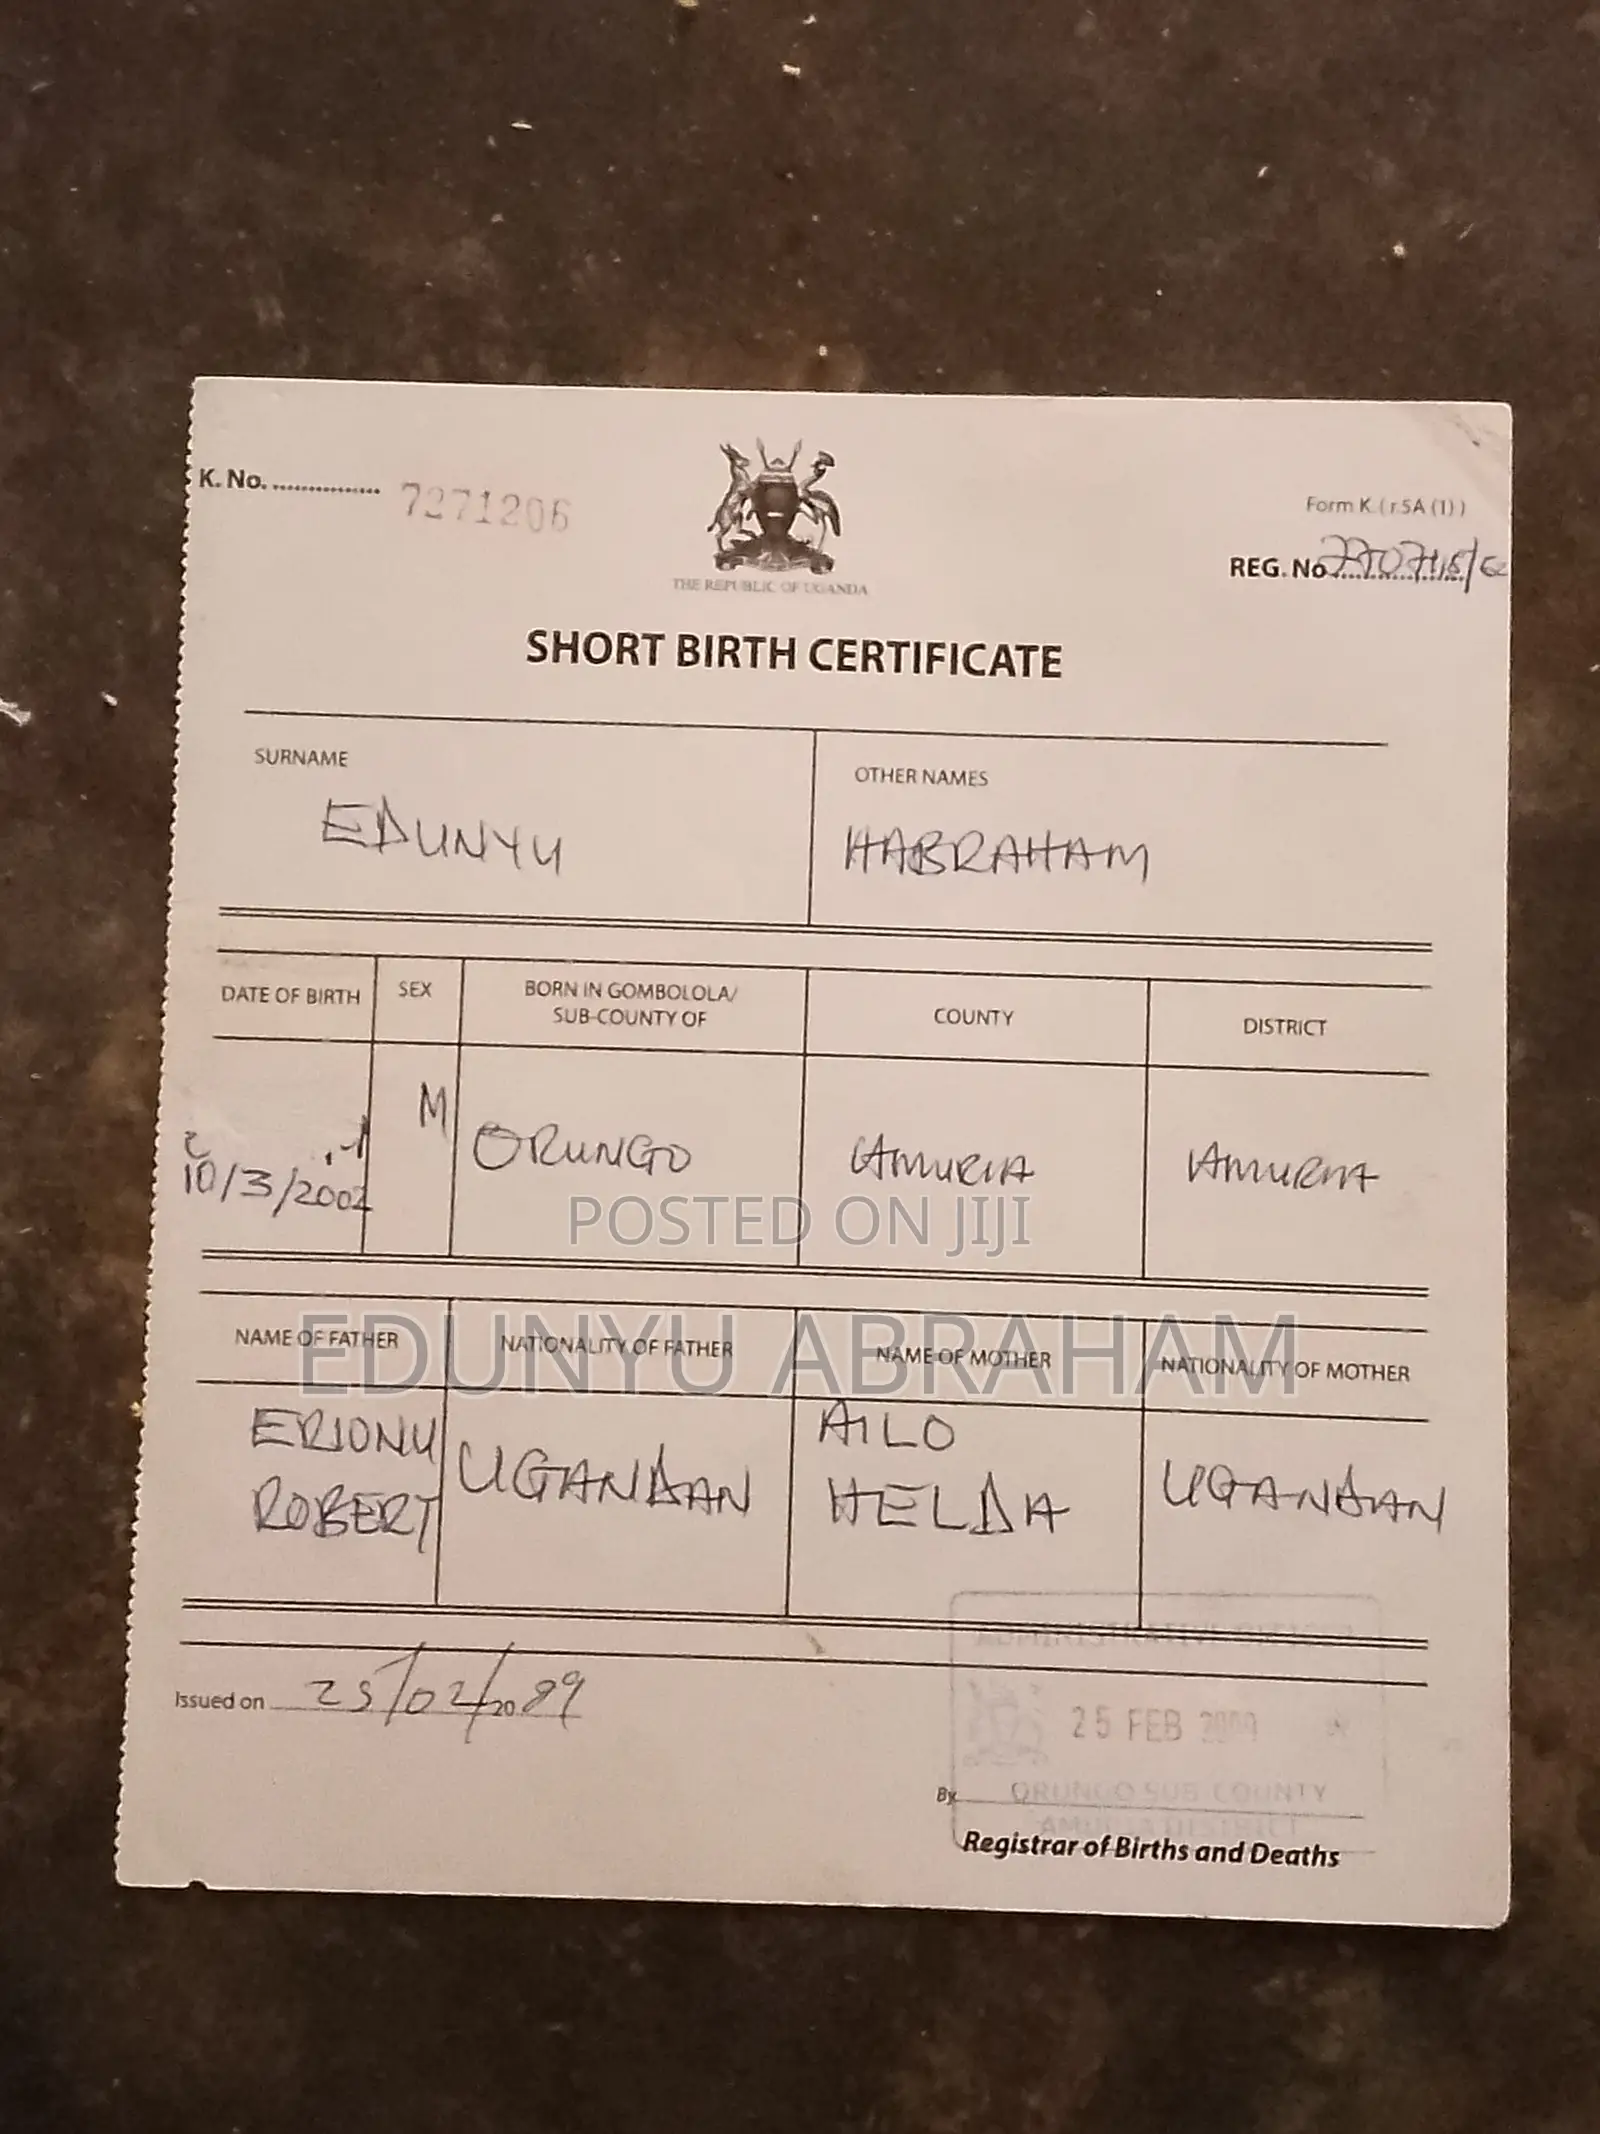 K. No. ................ 7271206
Form K. ( r.5A (1) )
REG. No
THE REPUBLIC OF UGANDA
SHORT BIRTH CERTIFICATE
SURNAME
OTHER NAMES
EDUNYU
HABRAHAM
DATE OF BIRTH
SEX
BORN IN GOMBOLOLA/
SUB-COUNTY OF
COUNTY
DISTRICT
10/3/2002
M
ORUNGO
AMURIA
AMURIA
POSTED ON JIJI
EDUNYU ABRAHAM
NAME OF FATHER
NATIONALITY OF FATHER
NAME OF MOTHER
NATIONALITY OF MOTHER
ERIONU
ROBERT
UGANDAN
AILO
HELDA
UGANDAN
ADMINISTRATIVE OFFICER
Issued on 25/02/20 09
25 FEB 2009
ORUNGO SUB COUNTY
AMURIA DISTRICT
By
Registrar of Births and Deaths